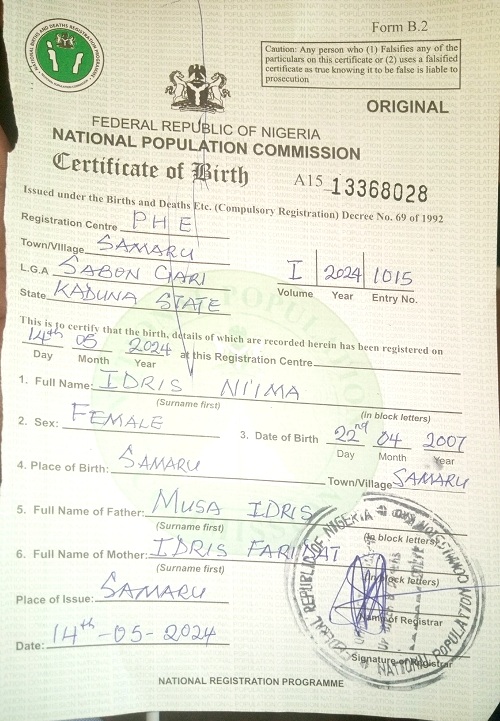 Form B.2
NATIONAL BIRTHS AND DEATHS REGISTRATION PROGRAMME
Caution: Any person who (1) Falsifies any of the
particulars on this certificate or (2) uses a falsified
certificate as true knowing it to be false is liable to
prosecution
ORIGINAL
FEDERAL REPUBLIC OF NIGERIA
NATIONAL POPULATION COMMISSION
Certificate of Birth
A15 13368028
Issued under the Births and Deaths Etc. (Compulsory Registration) Decree No. 69 of 1992
Registration Centre PHE
Town/Village SAMARU
L.G.A SABON GARI
State KADUNA STATE
I 2024 1015
Volume Year Entry No.
This is to certify that the birth, details of which are recorded herein has been registered on
14th 05 2024 at this Registration Centre
Day Month Year
1. Full Name: IDRIS NI'IMA
(Surname first) (in block letters)
2. Sex: FEMALE 3. Date of Birth 22nd 04 2007
Day Month Year
4. Place of Birth: SAMARU Town/Village SAMARU
5. Full Name of Father: MUSA IDRIS
(Surname first) (In block letters)
6. Full Name of Mother: IDRIS FARIDAT
(Surname first) (in block letters)
Place of Issue: SAMARU
Name of Registrar
Date: 14th-05-2024
Signature of Registrar
FEDERAL REPUBLIC OF NIGERIA
NATIONAL POPULATION COMMISSION
NATIONAL REGISTRATION PROGRAMME